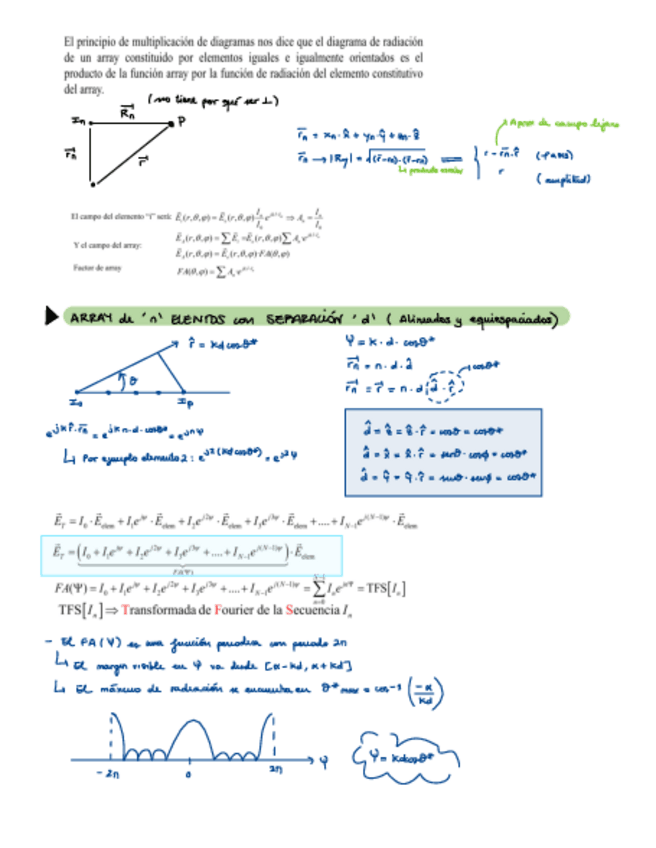 El principio de multiplicación de diagramas nos dice que el diagrama de radiación
de un array constituido por elementos iguales e igualmente orientados es el
producto de la función array por la función de radiación del elemento constitutivo
del array.
(no tiene por qué ser ⊥)
In R⃗n P
r⃗n r⃗
r̄n = xn·x̂ + yn·ŷ + zn·ẑ
→ Aprox de campo lejano
r - r̄n·r̂ (FASE)
r (amplitud)
El campo del elemento "i" será:
Y el campo del array:
Factor de array FA(θ,φ) = ∑ Aₙ
ARRAY de 'n' ELENTOS con SEPARACIÓN 'd' ( Alineados y equiespaciados)
r̂ = kd cosθ*
θ
Ψ = k · d · cosθ*
r⃗n = n · d · d̂
r⃗n = r⃗ = n · d (d̂ · r̂) → cosθ*
e^{jk r̂·r⃗n} = e^{jkn·d·cosθ*} = e^{jnΨ}
↳ Por ejemplo elemento 2: e^{j2(kd cosθ*)} = e^{j2Ψ}
d̂ = ẑ = ẑ · r̂ = cosθ = cosθ*
d̂ = x̂ = x̂ · r̂ = senθ · cosϕ = cosθ*
d̂ = ŷ = ŷ · r̂ = senθ · senϕ = cosθ*
E⃗_T = I₀ · E⃗_elem + I₁e^{jψ} · E⃗_elem + I₂e^{j2ψ} · E⃗_elem + I₃e^{j3ψ} · E⃗_elem + .... + I_{N-1}e^{j(N-1)ψ} · E⃗_elem
E⃗_T = (I₀ + I₁e^{jψ} + I₂e^{j2ψ} + I₃e^{j3ψ} + .... + I_{N-1}e^{j(N-1)ψ}) · E⃗_elem
FA(Ψ)
FA(Ψ) = I₀ + I₁e^{jψ} + I₂e^{j2ψ} + I₃e^{j3ψ} + .... + I_{N-1}e^{j(N-1)ψ} = ∑_{n=0}^{N-1} Iₙe^{jnΨ} = TFS[Iₙ]
TFS[Iₙ] ⇒ Transformada de Fourier de la Secuencia Iₙ
- El FA(Ψ) es una función periodica con periodo 2π
↳ El margen visible en Ψ va desde [α-kd, α+kd]
↳ El máximo de radiación se encuentra en θ*max = cos⁻¹ (-α/kd)
-2π 0 2π Ψ
Ψ = kdcosθ*